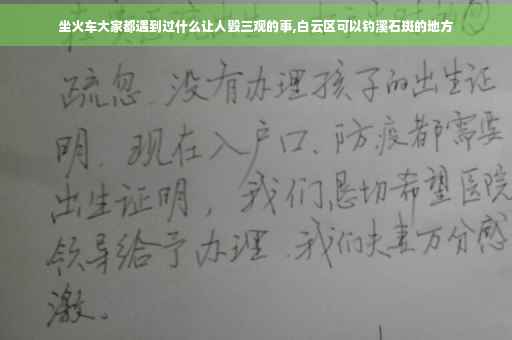 坐火车大家都遇到过什么让人毁三观的事,白云区可以钓溪石斑的地方
疏忽、没有办理孩子的出生证
明、现在入户口、防疫都需要
出生证明，我们恳切希望医院
领导给予办理、我们夫妻万分感
激。